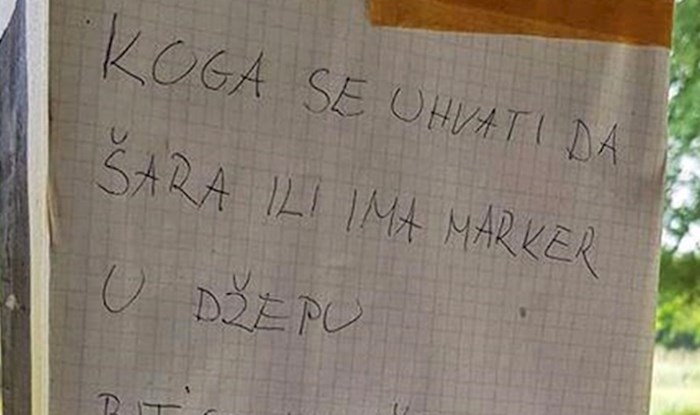 KOGA SE UHVATI DA
ŠARA ILI IMA MARKER
U DŽEPU